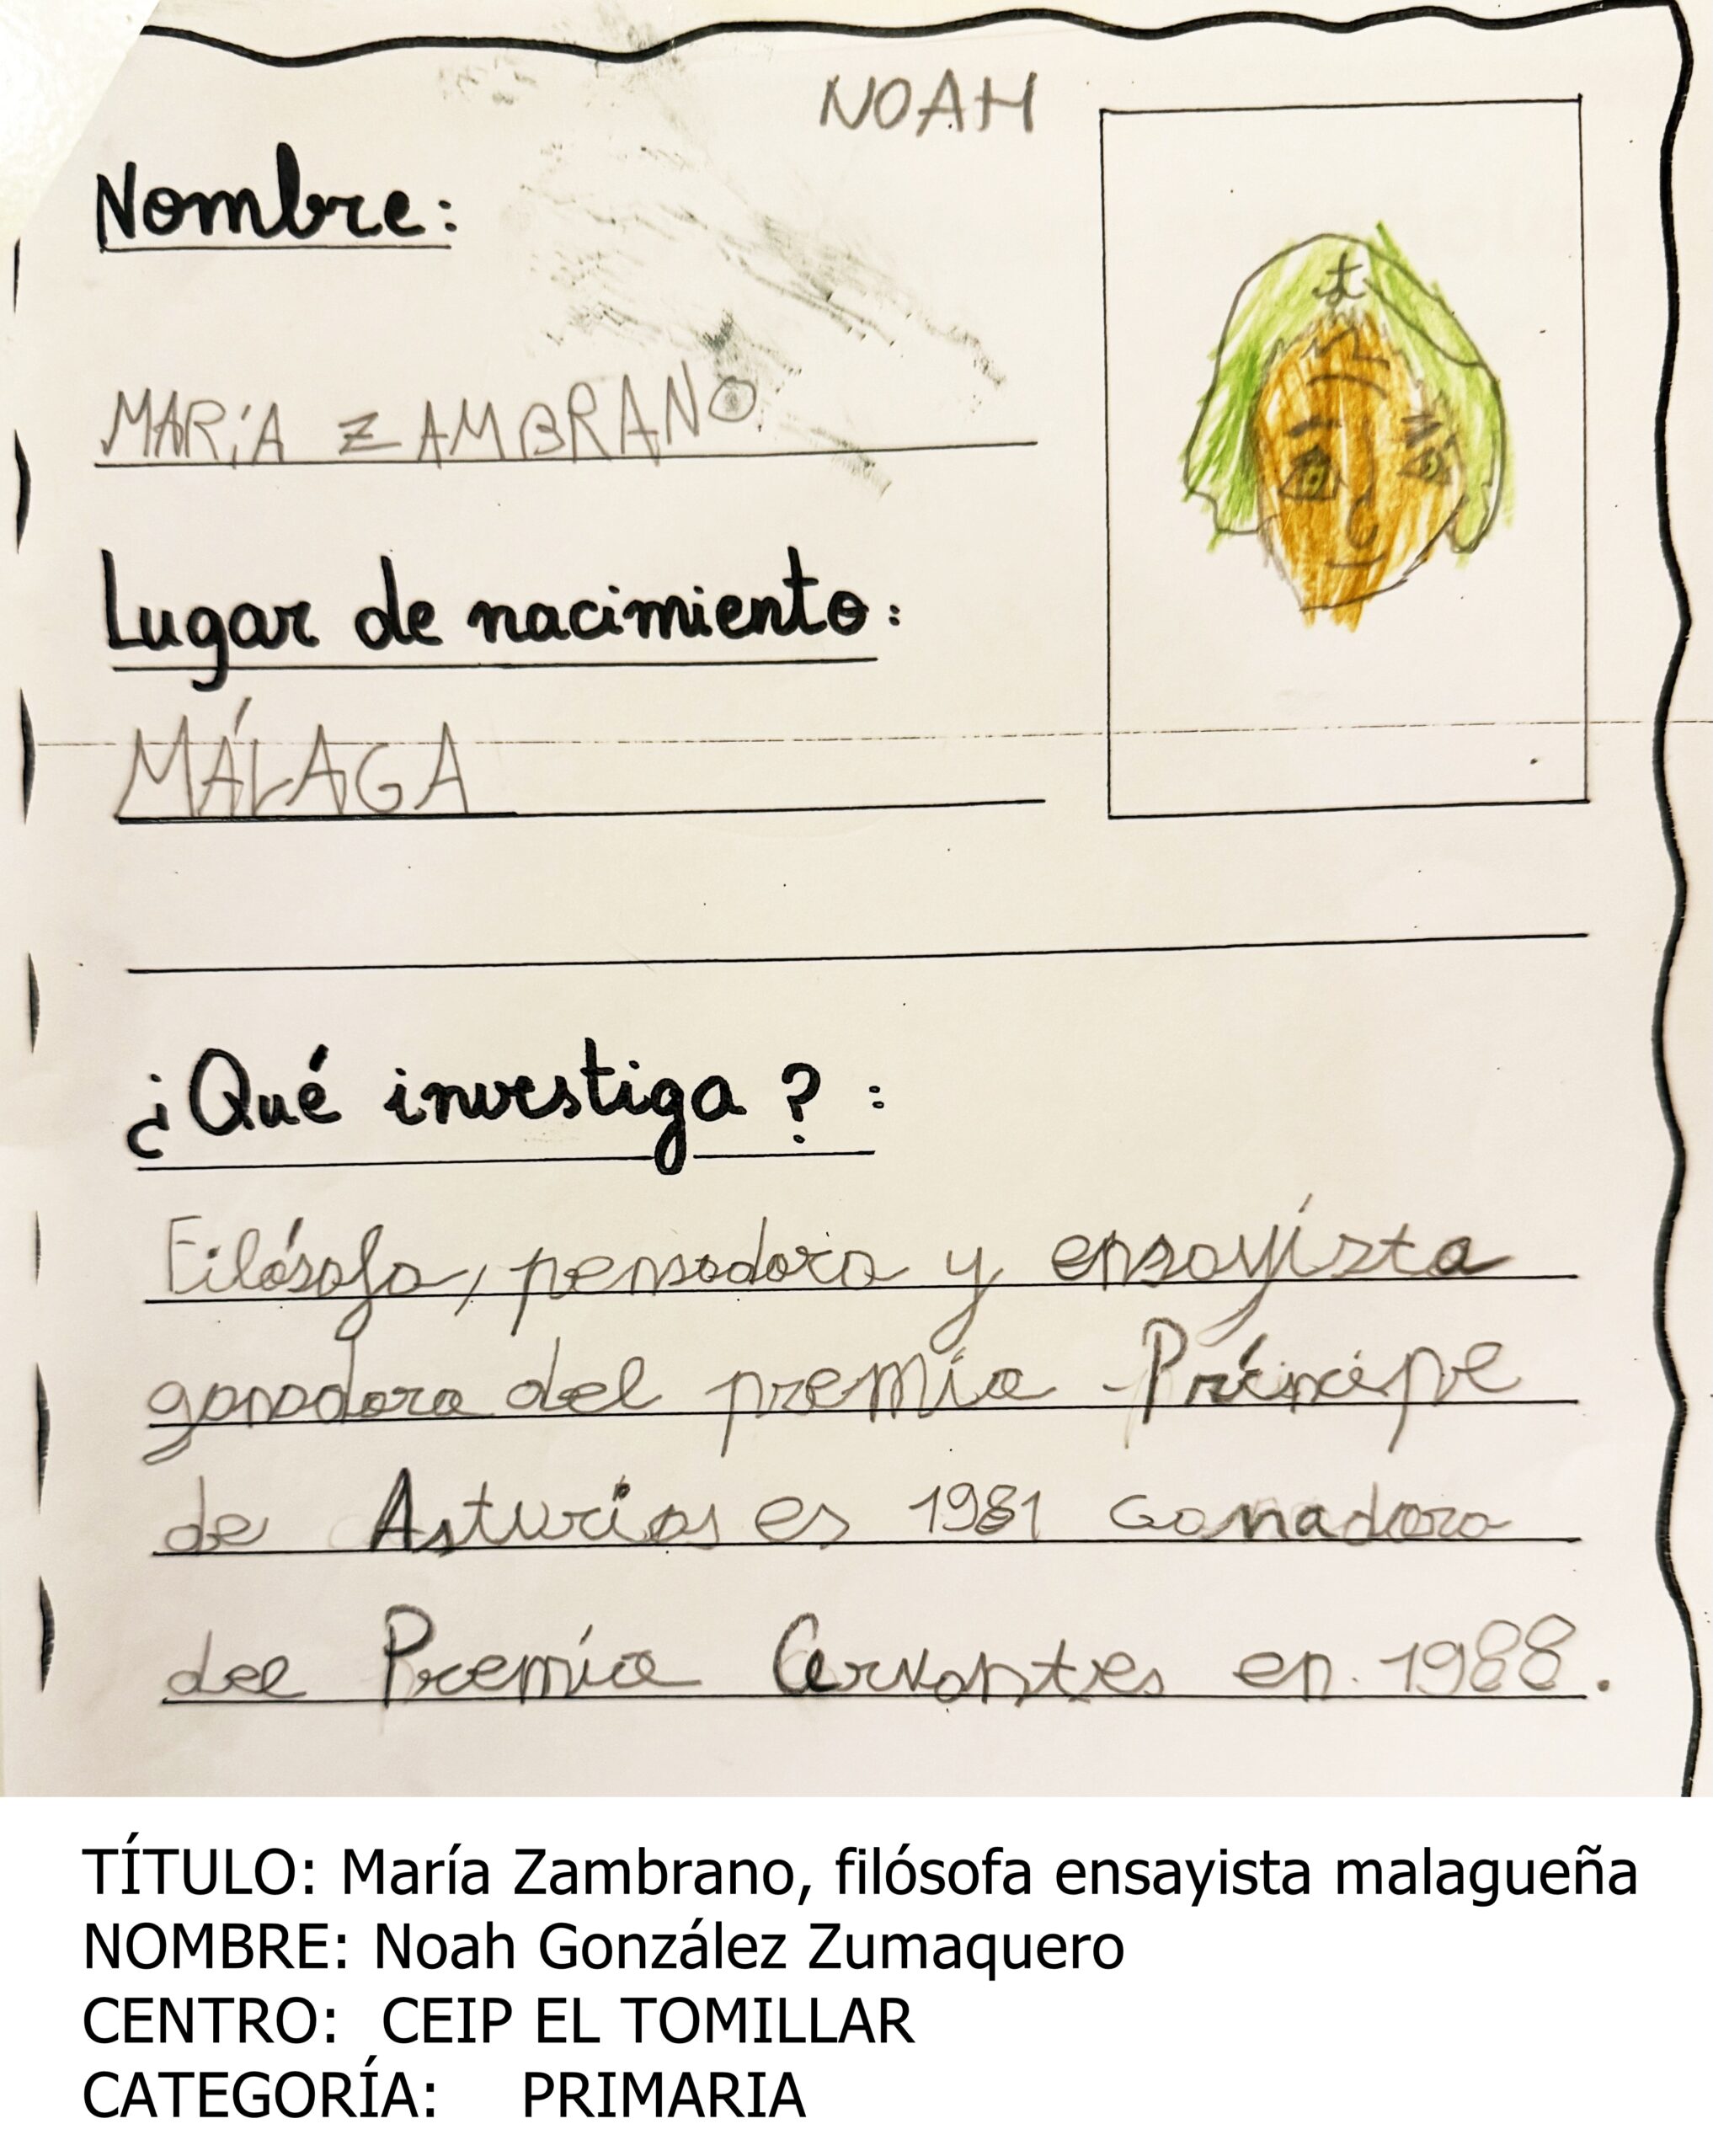 NOAH
Nombre:
MARÍA ZAMBRANO
Lugar de nacimiento:
MÁLAGA
¿Qué investiga?:
Filósofa, pensadora y ensayísta
ganadora del premio Príncipe
de Asturias es 1981 Ganadora
del Premio Cervantes en 1988.
TÍTULO: María Zambrano, filósofa ensayista malagueña
NOMBRE: Noah González Zumaquero
CENTRO: CEIP EL TOMILLAR
CATEGORÍA: PRIMARIA